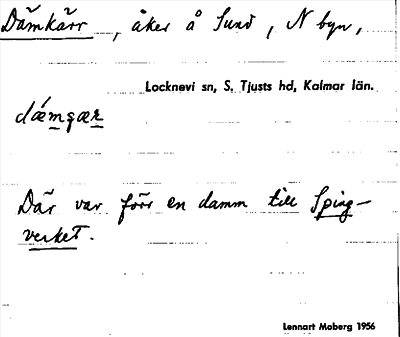 Dämkärr, åker å Sund, N byn,
Locknevi sn, S. Tjusts hd, Kalmar län.
dǽmɕær
Där var förr en damm till Sping-
verket.
Lennart Moberg 1956